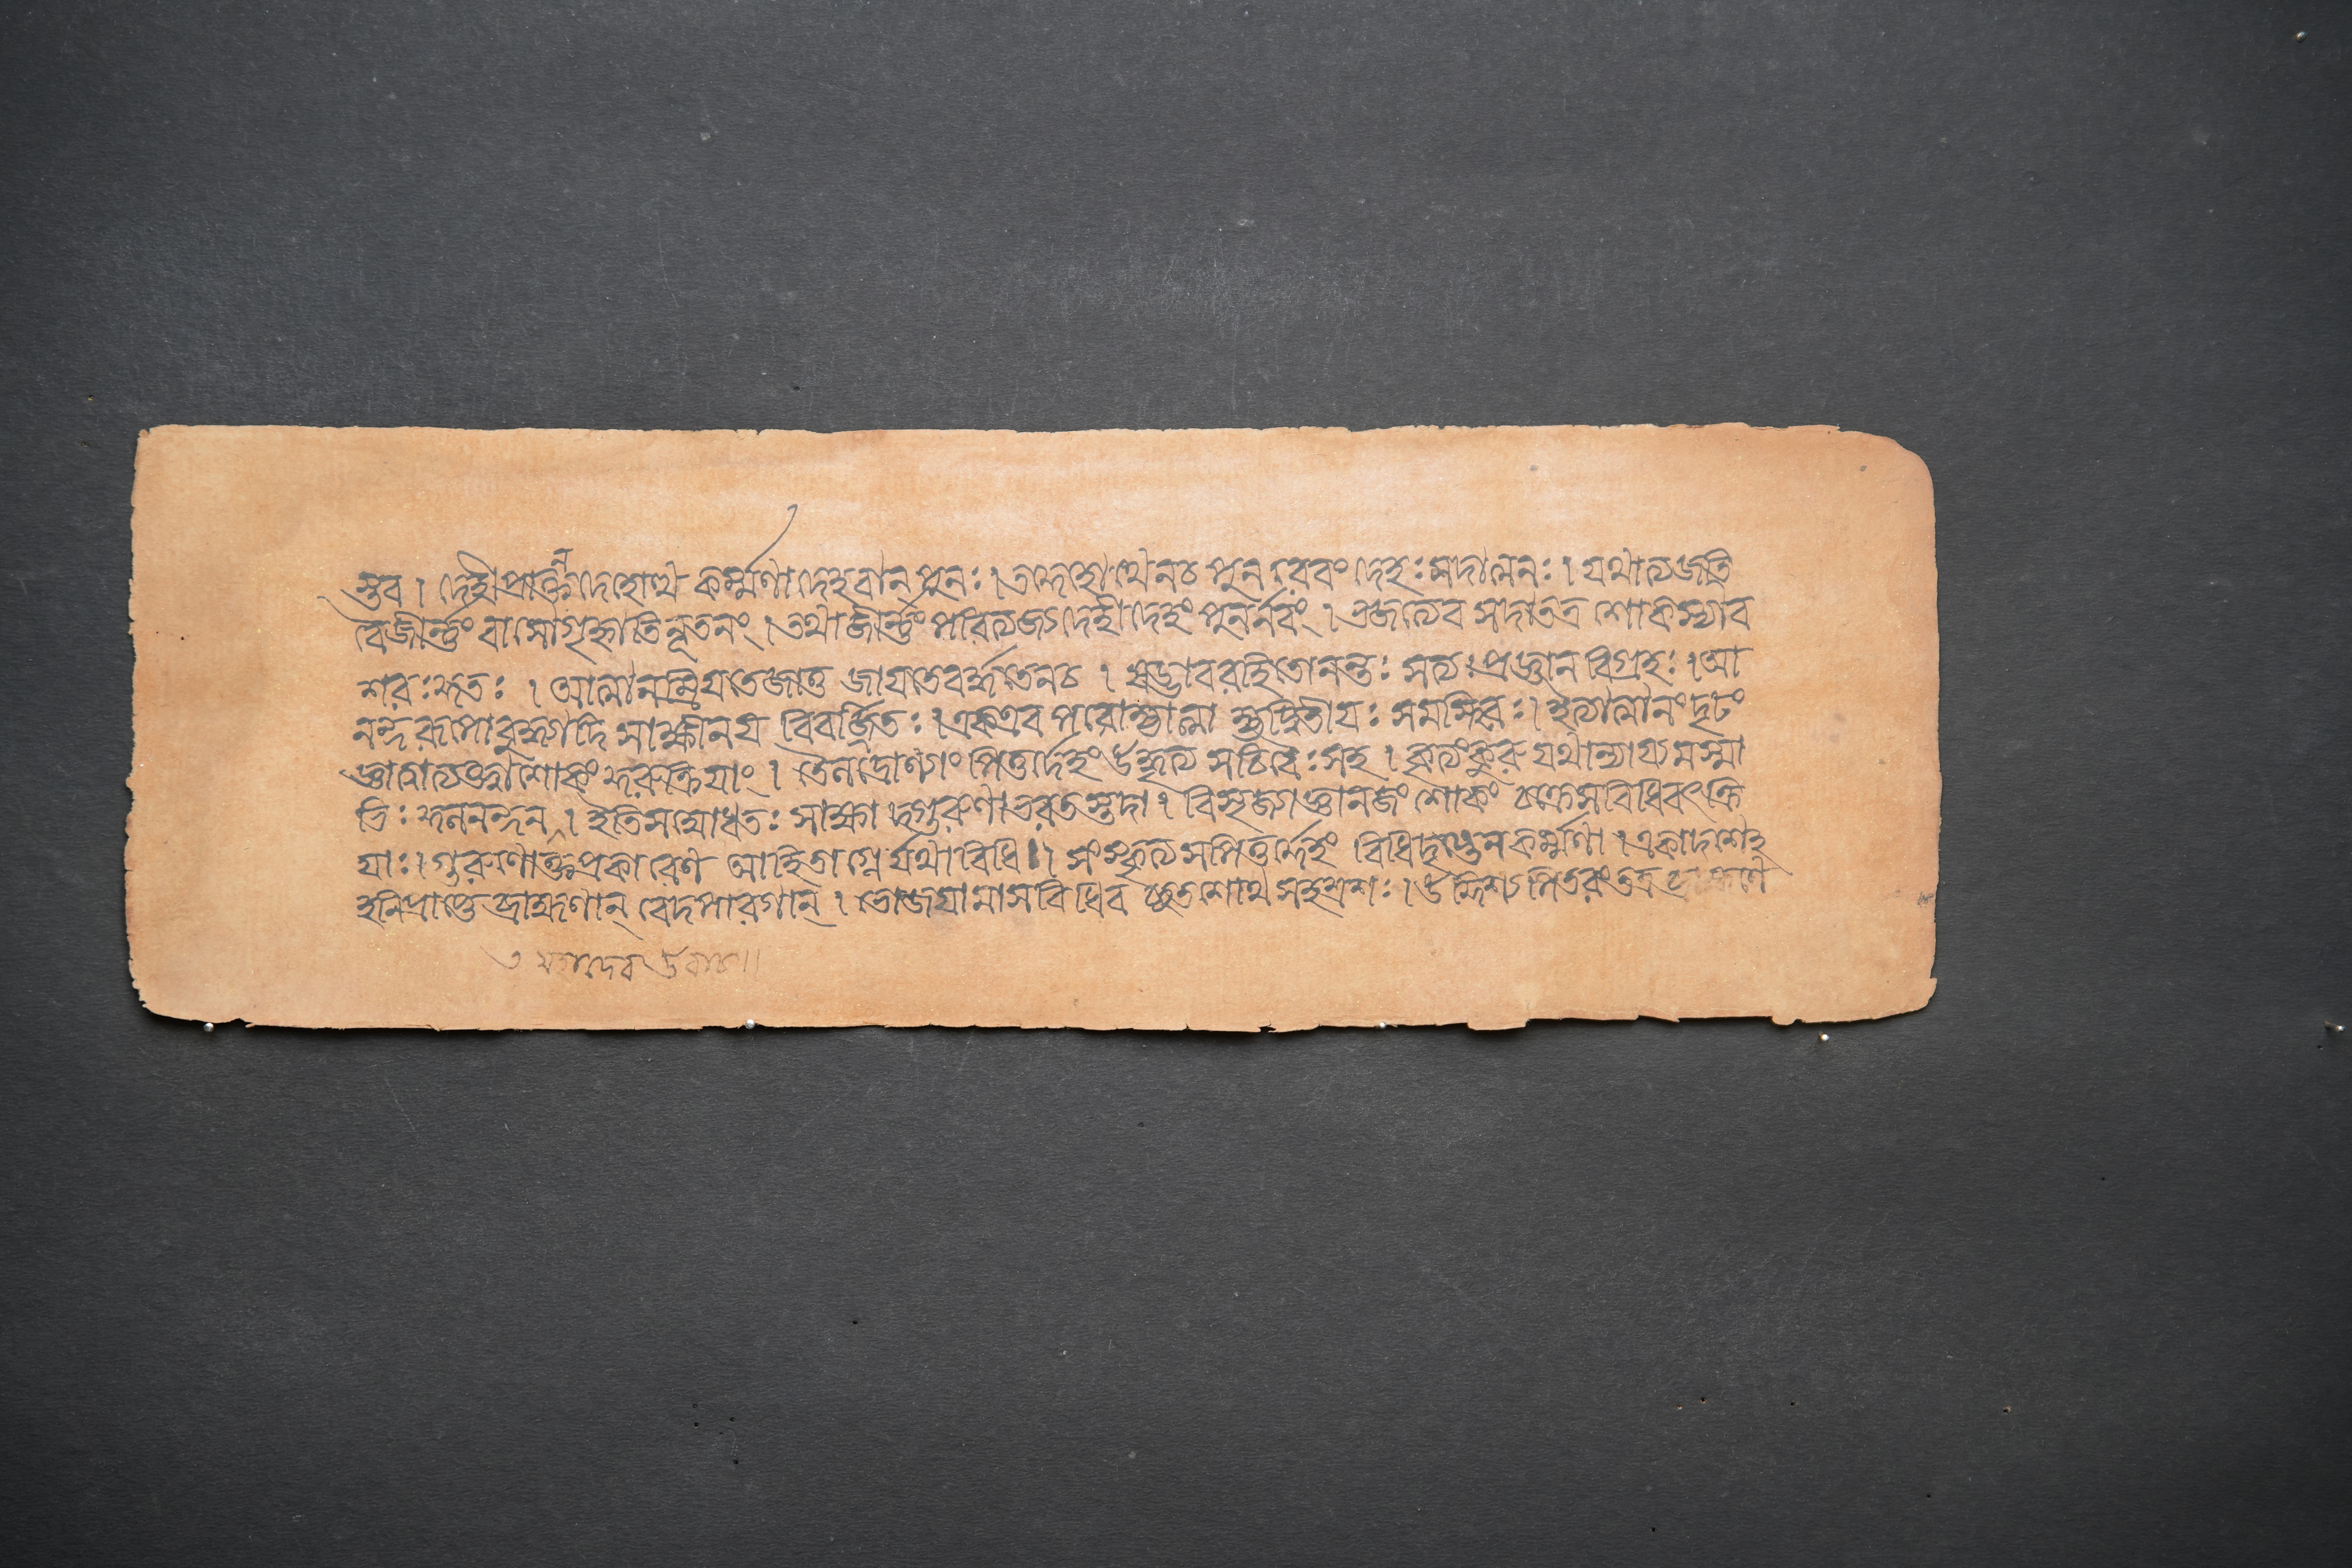 স্তব । দেহী প্রাক্তনদেহোত্থ কর্ম্মণা দেহবান্ পুনঃ । তদ্দেহোত্থেনচ পুনরেবং দেহঃ সদাত্মনঃ । যথাত্যজতি
বৈজীর্ণ্ণং বাসোগৃহ্নাতি নূতনং । তথাজীর্ণ্ণং পরিত্যজ্য দেহী দেহং পুনর্নবং । ভজত্যেব সদাতত্র শোকস্যাব
শরঃ কুতঃ । আত্মানম্রিয়তেজাতু জায়তেবর্দ্ধতেনচ । ষড্ভাবরহিতোনন্তঃ সত্যঃ প্রজ্ঞান বিগ্রহঃ । আ
নন্দরূপোবুদ্ধ্যাদি সাক্ষীলয় বিবর্জ্জিতঃ । একএব পরোহ্যাত্মা হ্যদ্বিতীয়ঃ সমস্থিতঃ । ইত্যাত্মানং দৃঢং
জ্ঞাত্বাত্যক্ত্বাশোকং কুরুক্রিয়াং । তৈলদ্রোণ্যাং পিতুর্দেহং উদ্ধৃত্য সচিবৈঃ সহ । কৃত্যংকুরু যথান্যায়মস্মা
ভিঃ কুলনন্দন । ইতিসম্বোধিতঃ সাক্ষা দ্গুরুণা ভরতস্তদা । বিসৃজ্যাজ্ঞানজং শোকং চক্রেসবিধিবৎক্রি
য়াঃ । গুরুণোক্তপ্রকারেণ আহিতাগ্নের্যথাবিধি । সংস্কৃত্য সপিতুর্দ্দেহং বিধিদৃষ্টেন কর্ম্মণা । একাদশেহ
হনিপ্রাপ্তে ব্রাহ্মণান্ বেদপারগান্ । ভোজয়ামাসবিধিব চ্ছতশোথ সহস্রশঃ । উদ্দিশ্য পিতরং তত্র ব্রাহ্মণে
মহাদেব উবাচ ॥